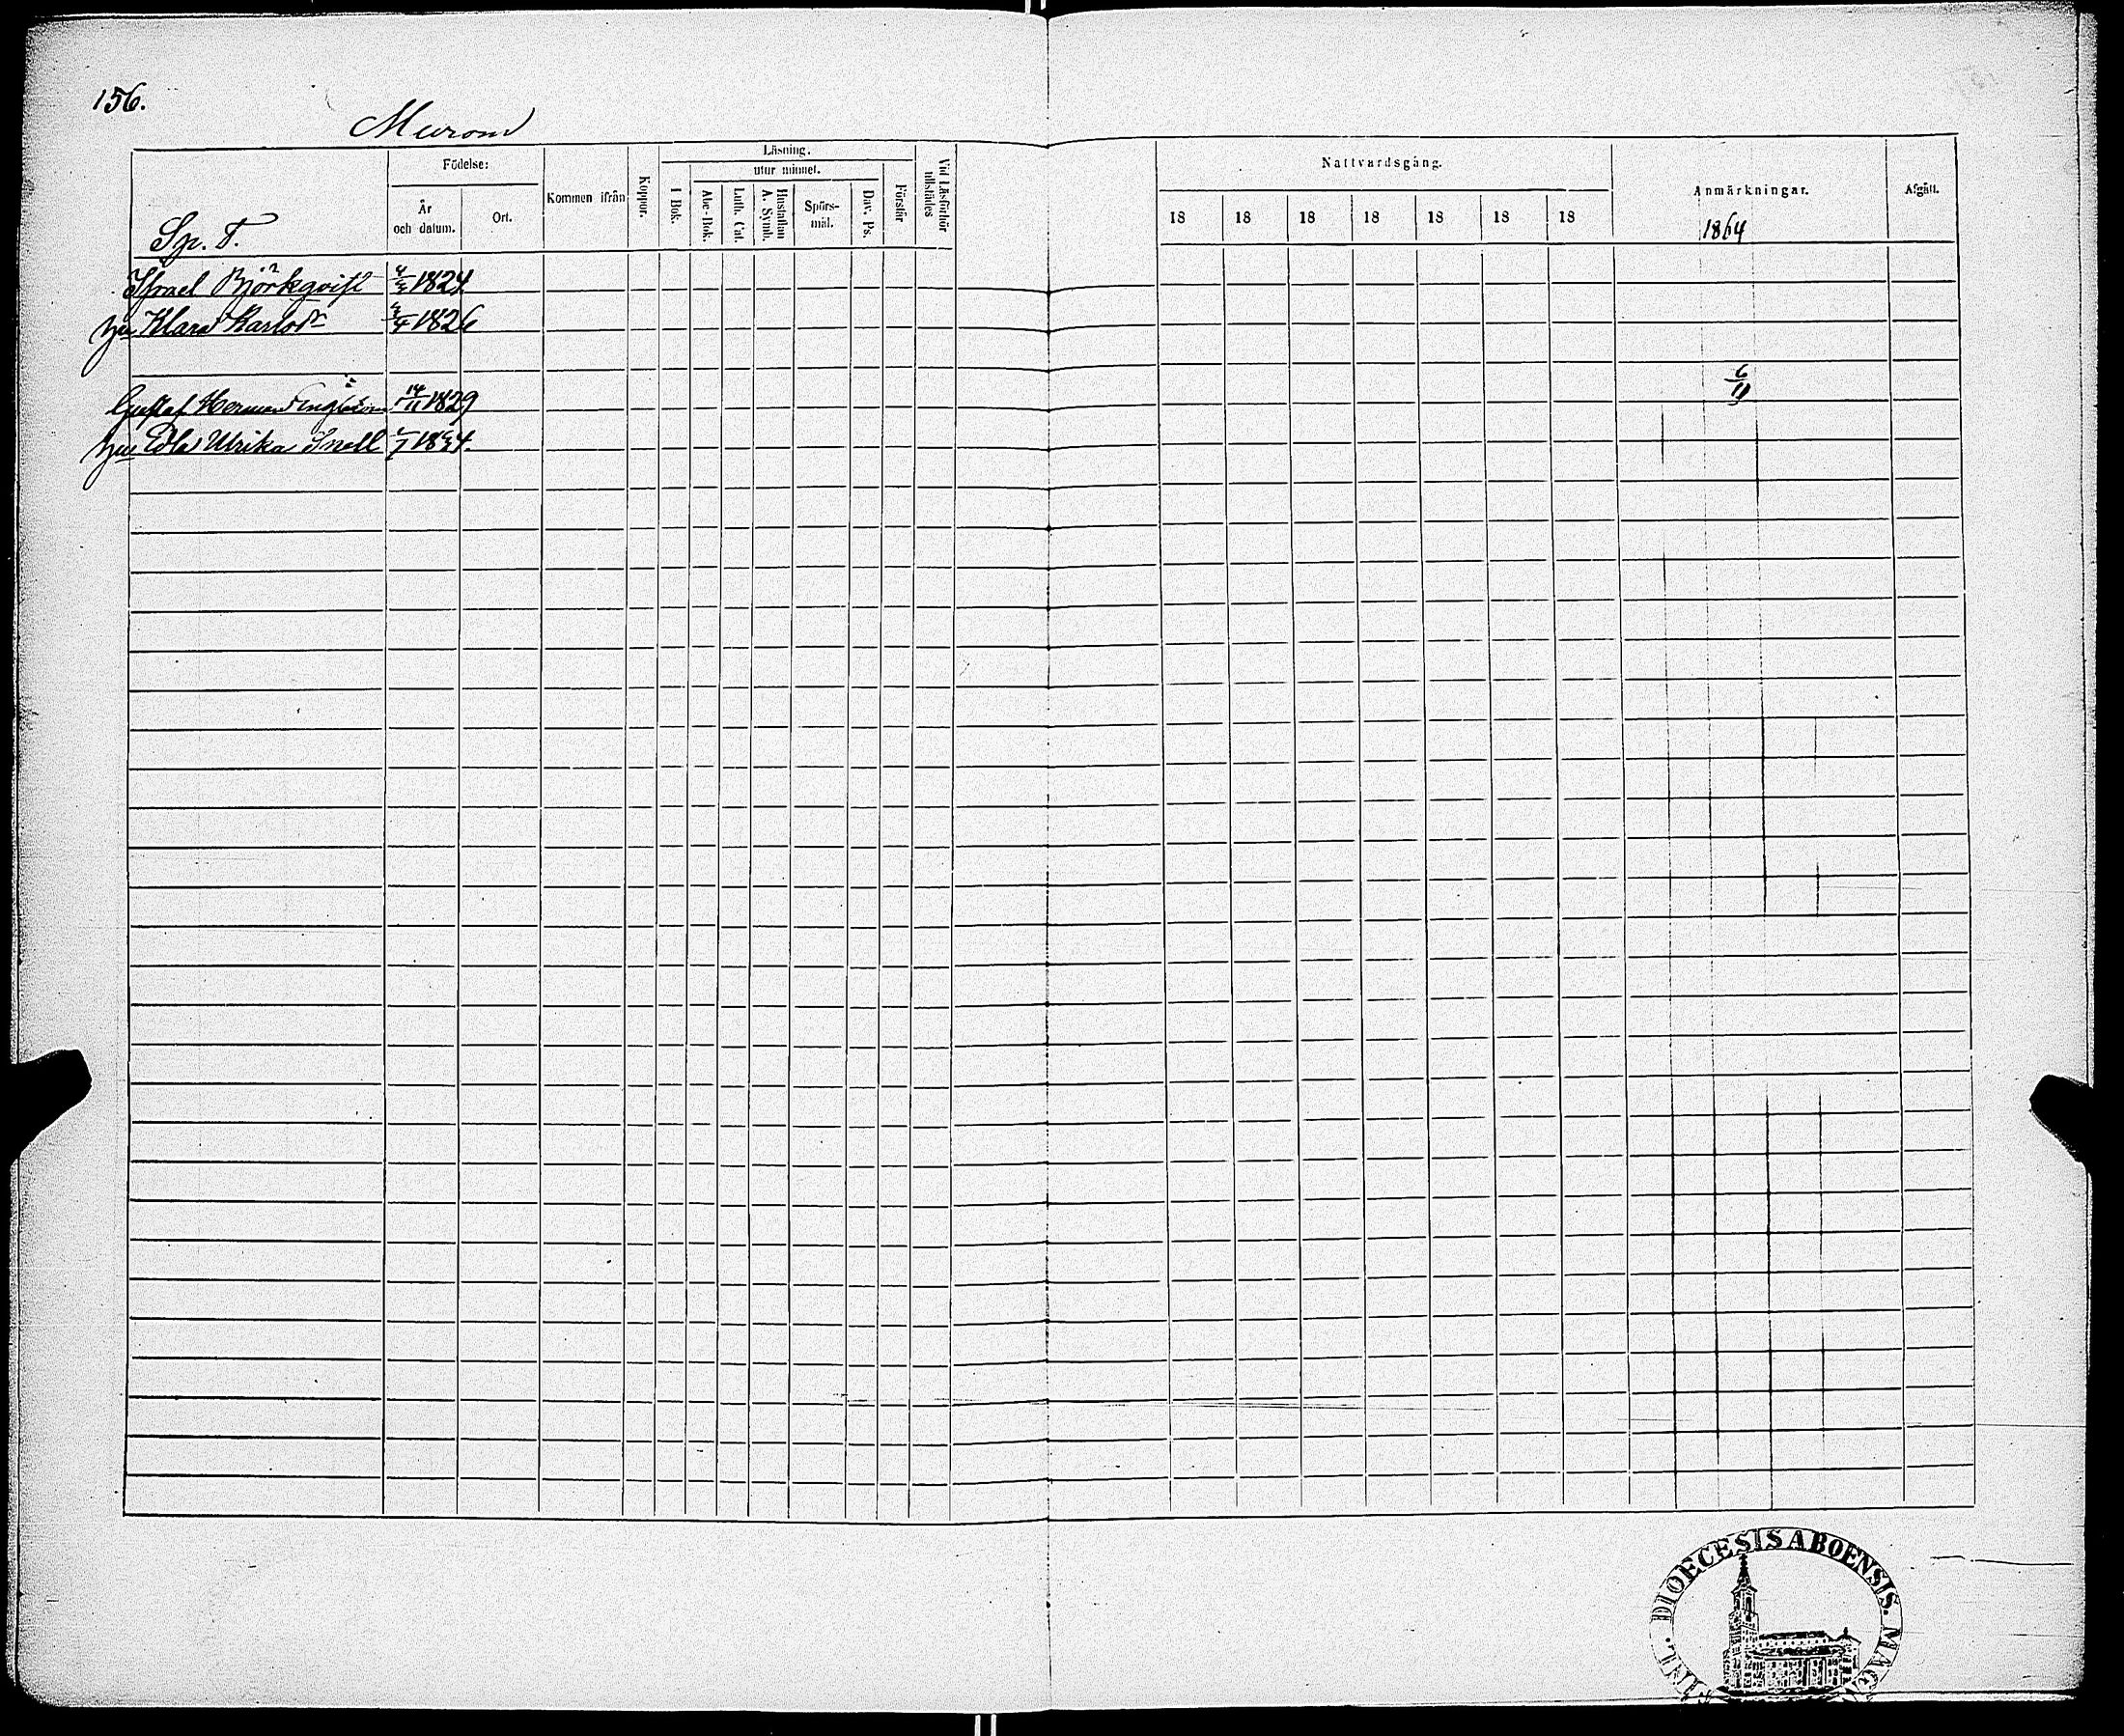 156.
Murom
Födelse:
År
och datum.
Ort.
Kommen ifrån
Koppor.
Läsning.
I Bok.
utur minnet.
Abc-Bok.
Luth. Cat.
Hustaflan
A. Symb.
Spörs-
mål.
Dav. Ps.
Förstår
Vid Läsförhör
tillstädes
Nattvardsgång.
18 18 18 18 18 18 18
Anmärkningar.
1864
Afgått.
Sp. T.
Israel Björkqvist 4/3 1824
hu Klara Karlsdr 3/4 1826
Gustaf Herman 14/11 1829 6/11
hu Edla Ulrika Snell 1834.
DIOECESIS ABOENSIS. MAG